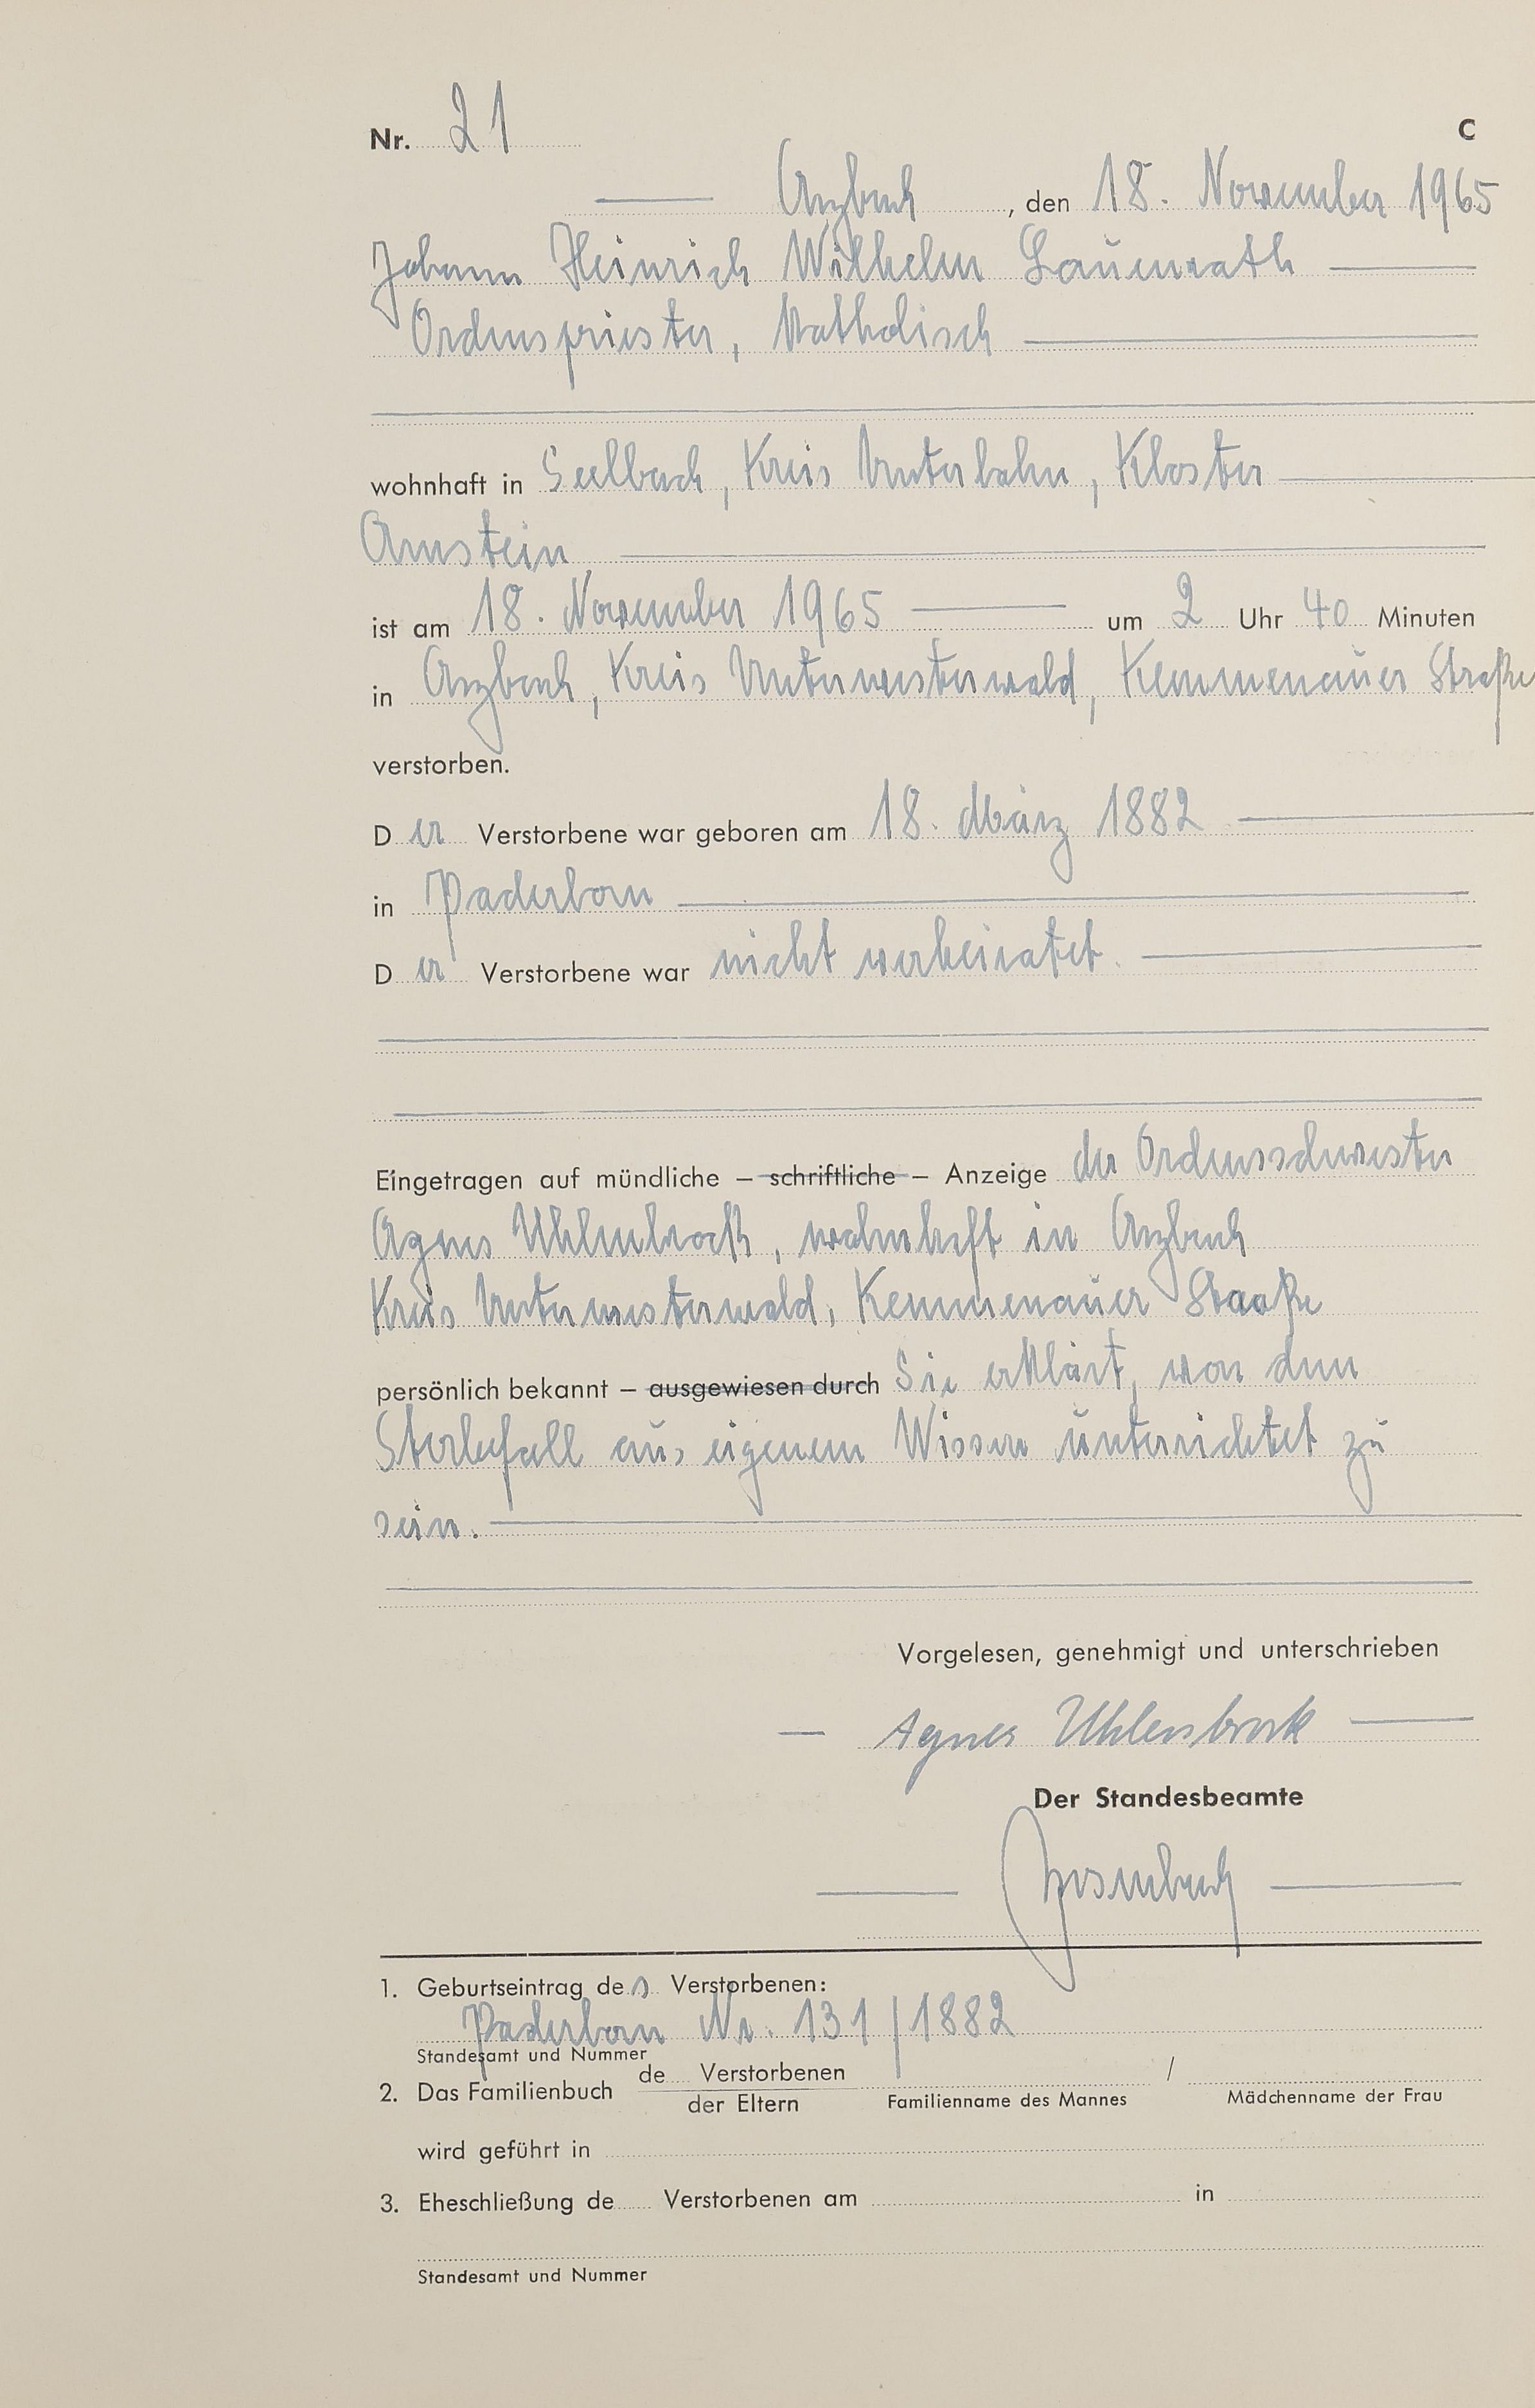 Nr. 21
C
Arzbach, den 18. November 1965
Johann Heinrich Wilhelm Lauenrath
Ordenspriester, katholisch
wohnhaft in Seelbach, Kreis Unterlahn, Kloster
Arnstein
ist am 18. November 1965 um 2 Uhr 40 Minuten
in Arzbach, Kreis Unterwesterwald, Kemmenauer Straße
verstorben.
D er Verstorbene war geboren am 18. März 1882
in Paderborn
D er Verstorbene war nicht verheiratet.
Eingetragen auf mündliche – schriftliche – Anzeige der Ordensschwester
Agnes Uhlenbrock, wohnhaft in Arzbach
Kreis Unterwesterwald, Kemmenauer Straße
persönlich bekannt – ausgewiesen durch Sie erklärt, von dem
Sterbefall aus eigenem Wissen unterrichtet zu
sein.
Vorgelesen, genehmigt und unterschrieben
Agnes Uhlenbrock
Der Standesbeamte
1. Geburtseintrag des Verstorbenen:
Paderborn Nr. 131/1882
Standesamt und Nummer
2. Das Familienbuch de Verstorbenen /
der Eltern Familienname des Mannes Mädchenname der Frau
wird geführt in
3. Eheschließung de Verstorbenen am in
Standesamt und Nummer